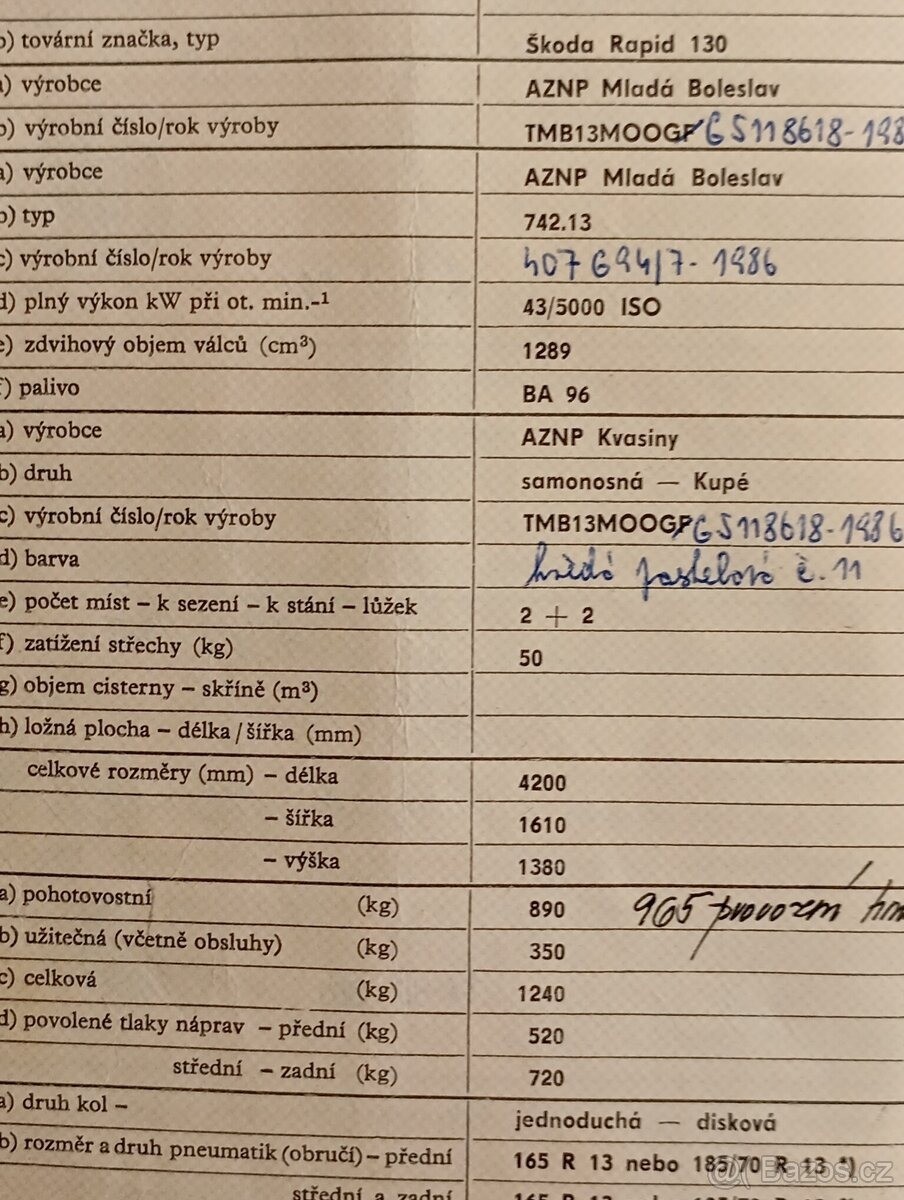 b) tovární značka, typ Škoda Rapid 130
a) výrobce AZNP Mladá Boleslav
b) výrobní číslo/rok výroby TMB13MOOGF GS118618-198
a) výrobce AZNP Mladá Boleslav
b) typ 742.13
c) výrobní číslo/rok výroby 407694/7-1986
d) plný výkon kW při ot. min.-¹ 43/5000 ISO
e) zdvihový objem válců (cm³) 1289
f) palivo BA 96
a) výrobce AZNP Kvasiny
b) druh samonosná — Kupé
c) výrobní číslo/rok výroby TMB13MOOGF GS118618-1986
d) barva hnědá pastelová č. 11
e) počet míst – k sezení – k stání – lůžek 2 + 2
f) zatížení střechy (kg) 50
g) objem cisterny – skříně (m³)
h) ložná plocha – délka/šířka (mm)
celkové rozměry (mm) – délka 4200
– šířka 1610
– výška 1380
a) pohotovostní (kg) 890 965 provozní hm
b) užitečná (včetně obsluhy) (kg) 350
c) celková (kg) 1240
d) povolené tlaky náprav – přední (kg) 520
střední – zadní (kg) 720
a) druh kol – jednoduchá — disková
b) rozměr a druh pneumatik (obručí) – přední 165 R 13 nebo 185/70 R 13 *)
střední a zadní
Bazos.cz